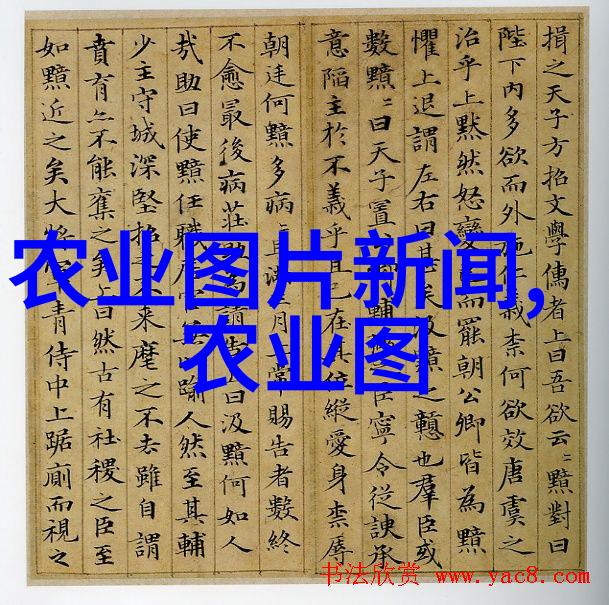 農业图片新闻,
农业图
損之天子方招文學儒者上曰吾欲云〻黯對曰
陛下內多欲而外施仁義柰何欲效唐虞之
治乎上黙然怒變而罷朝公卿皆為黯
懼上退謂左右曰甚矣汲黯之戇也羣臣或
數黯〻曰天子置輔之臣寧令從諛承
意陷主於不義乎且已在其位縱愛身柰辱
朝廷何黯多病且滿三月常賜告者數終
不愈最後病莊助為請告曰汲黯何如人
㢤助曰使黯任職居踰人然至其輔
少主守城深堅招來麾之不去雖自謂
賁育亦不能奪之矣上曰然古有社稷之臣至
如黯近之矣大將青侍中上踞廁而視之
书法欣赏 www.yac8.com